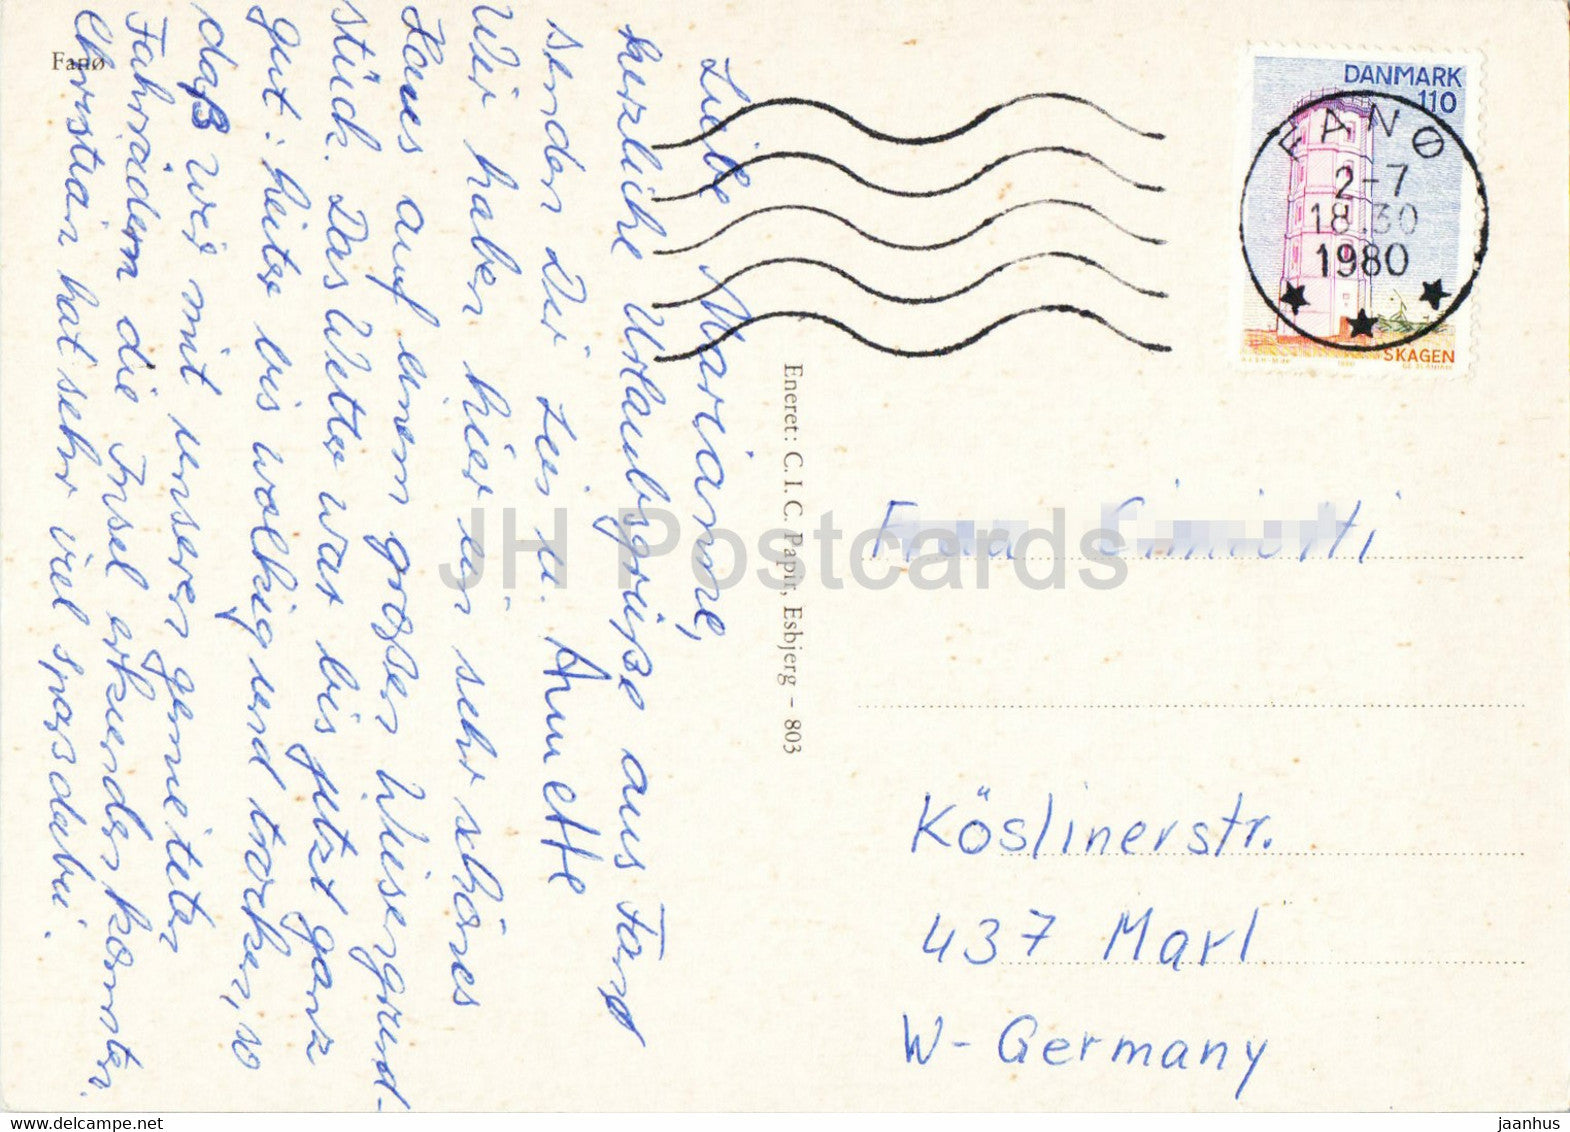 Fanø
Liebe Marianne,
herzliche Urlaubsgrüße aus Fanø
senden Dir Leis u. Annette
Wir haben hier ein sehr schönes
Haus auf einem großen Wiesengrund-
stück. Das Wetter war bis jetzt ganz
gut: heiter bis wolkig und trocken, so
daß wir mit unseren gemieteten
Fahrrädern die Insel erkunden konnten.
Christian hat sehr viel Spaß dabei.
Eneret: C. I. C. Papir, Esbjerg – 803
DANMARK
110
SKAGEN
FANØ
2-7
18.30
1980
Frau
Köslinerstr.
437 Marl
W-Germany
JH Postcards
www.delcampe.net
jaanhus